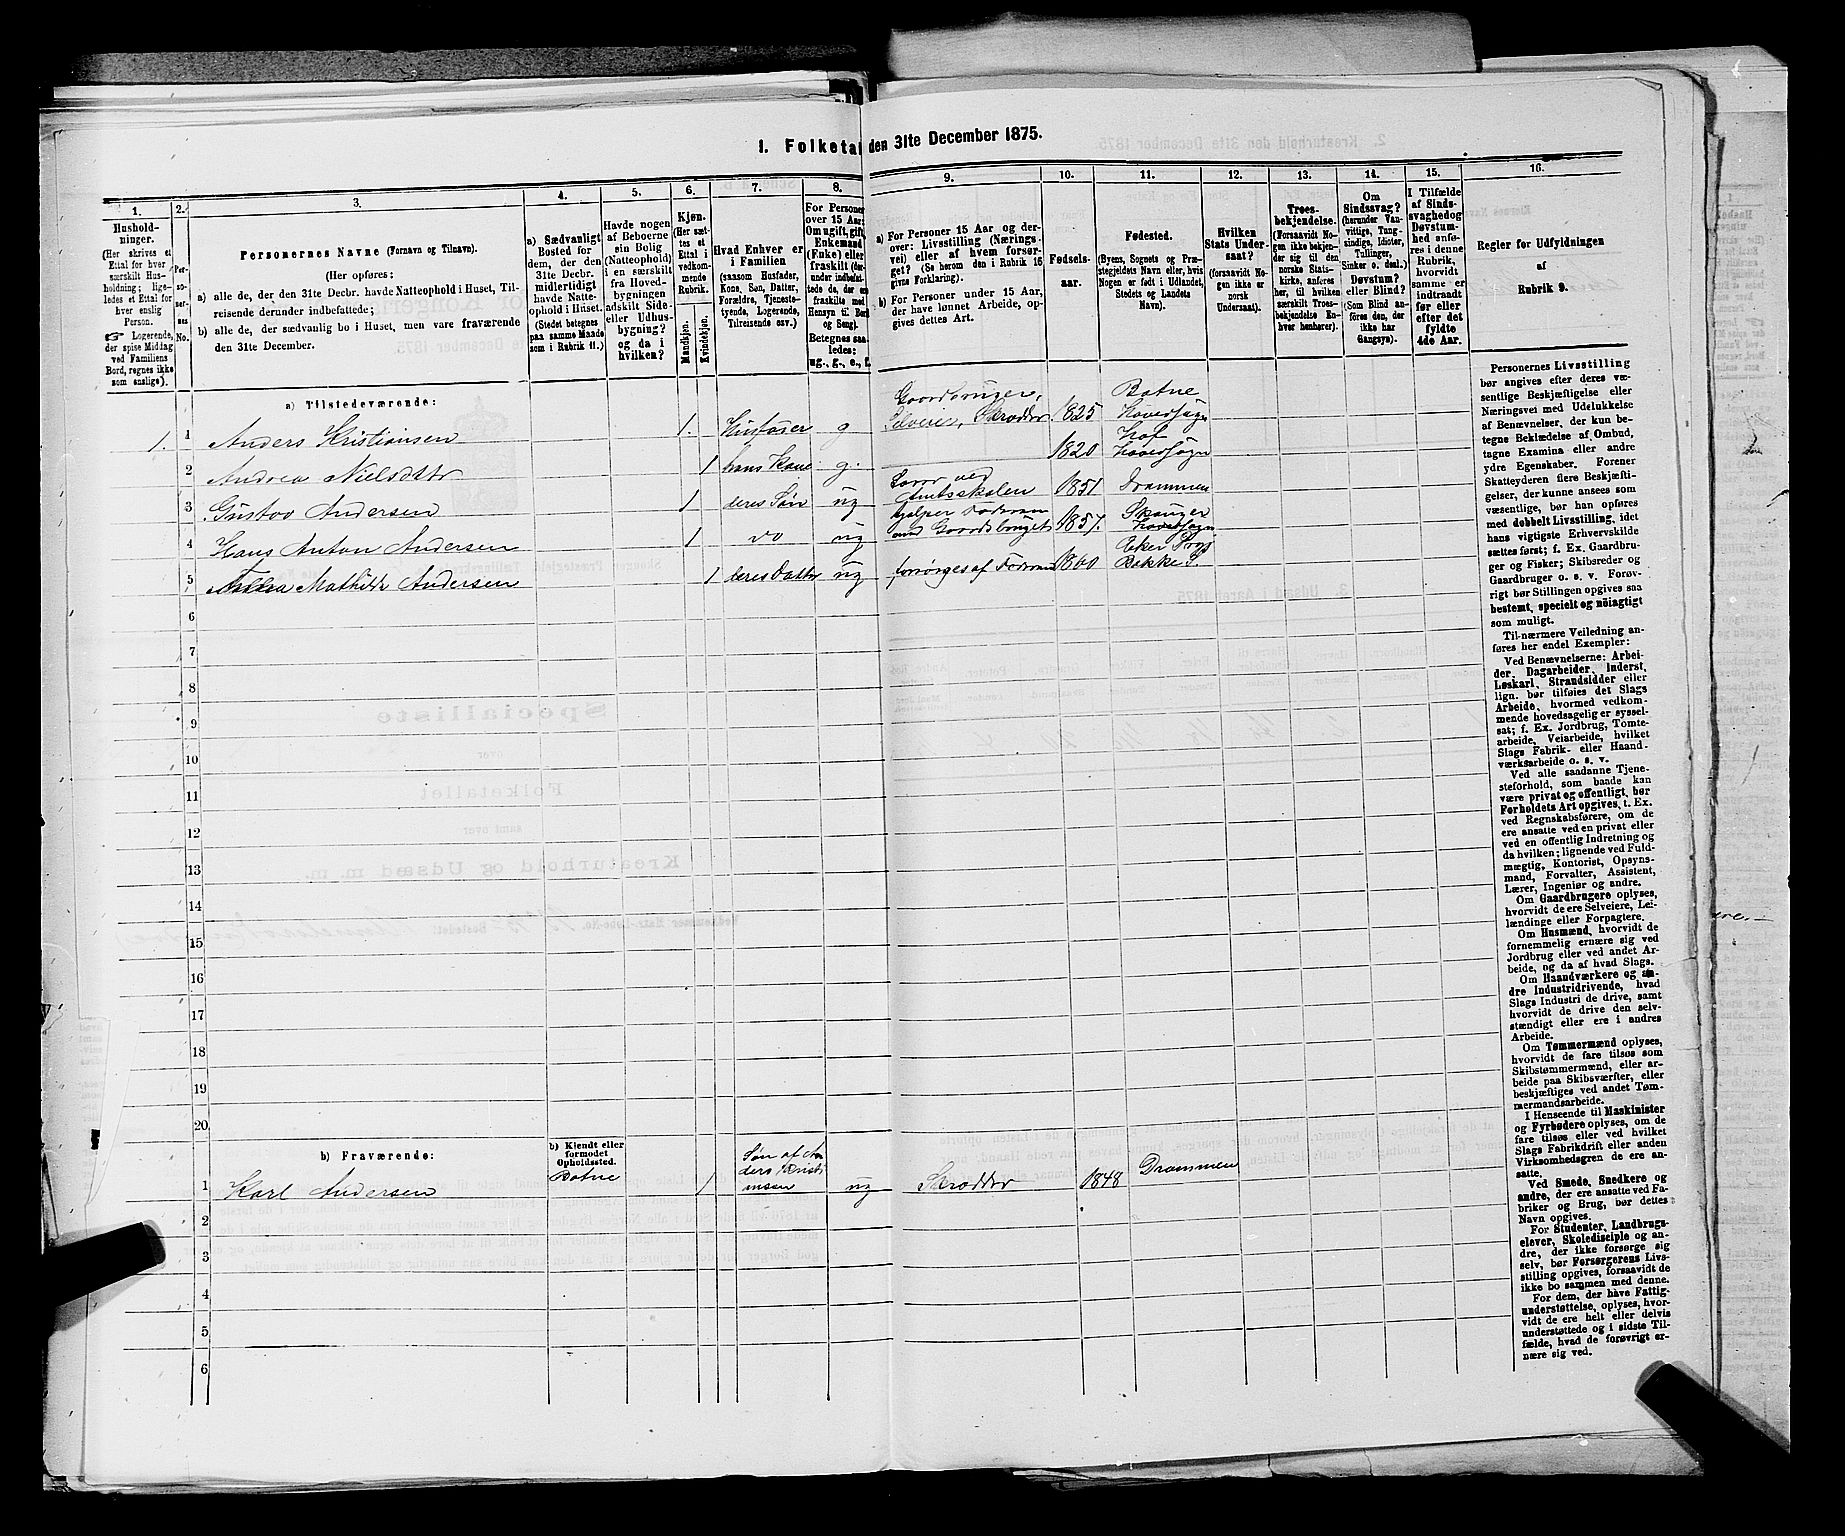 1. Folketal den 31te December 1875.
1.
2.
3.
4.
5.
6.
7.
8.
9.
10.
11.
12.
13.
14.
15.
16.
Hushold-
ninger.
(Her skrives et
Ettal for hver
særskilt Hus-
holdning; lige-
ledes et Ettal for
hver enslig
Person.
Logerende,
der spise Middag
ved Familiens
Bord, regnes ikke
som enslige).
Per-
so-
ner-
nes
No.
Personernes Navne (Fornavn og Tilnavn).
(Her opføres:
a) alle de, der den 31te Decbr. havde Natteophold i Huset, Til-
reisende derunder indbefattede;
b) alle de, der sædvanlig bo i Huset, men vare fraværende
den 31te December.
a) Sædvanligt
Bosted for
dem, der den
31te Decbr.
midlertidigt
havde Natte-
ophold i Huset.
(Stedet betegnes
paa samme Maade
som i Rubrik 11.)
Havde nogen
af Beboerne
sin Bolig
(Natteophold)
i en særskilt
fra Hoved-
bygningen
adskilt Side-
eller Udhus-
bygning?
og da i
hvilken?
Kjøn.
(Her sæt-
tes et
Ettal i
vedkom-
mende
Rubrik.
Mandkjøn.
Kvindekjøn.
Hvad Enhver er
i Familien
(saasom Husfader,
Kone, Søn, Datter,
Forældre, Tjeneste-
tyende, Logerende,
Tilreisende osv.)
For Personer
over 15 Aar:
Om ugift, gift,
Enkemand
(Enke) eller
fraskilt
Betegnes saa-
ledes:
ug., g., e., f.
a) For Personer 15 Aar og der-
over: Livsstilling (Nærings-
vei) eller af hvem forsør-
get? (Se herom den i Rubrik 16
givne Forklaring).
b) For Personer under 15 Aar,
der have lønnet Arbeide, op-
gives dettes Art.
Fødsels-
aar.
Fødested.
(Byens, Sognets og Præ-
stegjeldets Navn eller, hvis
Nogen er født i Udlandet,
Stedets og Landets
Navn).
Hvilken
Stats Under-
saat?
(forsaavidt No-
gen ikke er
norsk
Undersaat).
Troes-
bekjendelse.
(Forsaavidt No-
gen ikke bekjen-
der sig til den
norske Stats-
kirke, anføres
her, til hvilken
særskilt Troes-
bekjendelse En-
hver henhører).
Om
Sindssvag?
(herunder Van-
vittige, Tung-
sindige, Idioter,
Tullinger,
Sinker o. desl.)
Døvstum?
eller Blind?
(Som Blind an-
føres den, der
ikke har
Gangsyn).
I Tilfælde
af Sinds-
svaghed og
Døvstum-
hed anfø-
res i denne
Rubrik,
hvorvidt
samme er
indtraadt
før eller
efter det
fyldte
4de Aar.
Regler for Udfyldningen
af
Rubrik 9.
a) Tilstedeværende:
1. 1 Anders Kristiansen 1. Husfader g Gaardbruger, Selveier, Skrædder 1825 Botne Hovedsogn
2 Andrea Nielsdttr 1 hans Kone g. 1820 Hof Hovedsogn
3 Gustav Andersen 1 deres Søn ug Lærer ved Amtsskolen 1851 Drammen
4 Hans Anton Andersen 1 do ug hjelper Faderen med Gaardsbruget 1857. Skouger Hovedsogn
5 Mathilde Andersen 1 deres Datter ug forsørges af Faderen 1860
6
7
8
9
10
11
12
13
14
15
16
17
18
19
20
b) Fraværende:
b) Kjendt eller
formodet
Opholdssted.
1 Karl Andersen Botne 1 Søn af Anders Kristiansen ug Skrædder 1848 Drammen
2
3
4
5
6
Personernes Livsstilling
bør angives efter deres væ-
sentlige Beskjæftigelse eller
Næringsvei med Udelukkelse
af Benævnelser, der kun be-
tegne Beklædelse af Ombud,
tagne Examina eller andre
ydre Egenskaber. Forener
Skatteyderen flere Beskjæfti-
gelser, der kunne ansees som
væsentlige, bør han opføres
med dobbelt Livsstilling, idet
hans vigtigste Erhvervskilde
sættes først; f. Ex. Gaardbru-
ger og Fisker; Skibsreder og
Gaardbruger o. s. v. Forøv-
rigt bør Stillingen opgives saa
bestemt, specielt og nöiagtigt
som muligt.
Til nærmere Veiledning an-
føres her endel Exempler:
Ved Benævnelserne: Arbei-
der, Dagarbeider, Inderst,
Løskarl, Strandsidder eller
lign. bør tilføies det Slags
Arbeide, hvormed vedkom-
mende hovedsagelig er syssel-
sat; f. Ex. Jordbrug, Tomte-
arbeide, Veiarbeide, hvilket
Slags Fabrik- eller Haand-
værksarbeide o. s. v.
Ved alle saadanne Tjene-
steforhold, som baade kan
være privat og offentligt, bør
Forholdets Art opgives, t. Ex.
ved Regnskabsførere, om de
ere ansatte ved en privat eller
ved en offentlig Indretning og
da hvilken; lignende ved Fuld-
mægtig, Kontorist, Opsyns-
mand, Forvalter, Assistent,
Lærer, Ingeniør og andre.
Om Gaardbrugere oplyses,
hvorvidt de ere Selveiere, Lei-
lændinge eller Forpagtere.
Om Husmænd, hvorvidt de
fornemmelig ernære sig ved
Jordbrug eller ved andet Ar-
beide, og da af hvad Slags.
Om Haandværkere og an-
dre Industridrivende, hvad
Slags Industri de drive, samt
hvorvidt de drive den selv-
stændigt eller ere i andres
Arbeide.
Om Tømmermænd oplyses,
hvorvidt de fare tilsøs som
Skibstømmermænd, eller ar-
beide paa Skibsværfter, eller
beskjæftiges ved andet Tøm-
mermandsarbeide.
I Henseende til Maskinister
og Fyrbødere oplyses, om de
fare tilsøs eller ved hvilket
Slags Fabrikdrift eller anden
Virksomhedsgren de ere an-
satte.
Ved Smede, Snedkere og
andre, der ere ansatte ved Fa-
briker og Brug, bør dettes
Navn opgives.
For Studenter, Landbrugs-
elever, Skoledisciple og an-
dre, der ikke forsørge sig
selv, bør Forsørgerens Livs-
stilling opgives, forsaavidt de
ikke bo sammen med denne.
For dem, der have Fattig-
understøttelse, oplyses, hvor-
vidt de ere helt eller delvis
understøttede og i sidste Til-
fælde, hvad de forøvrigt er-
nære sig ved.